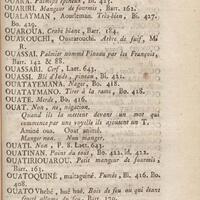 OUARA. Palmipe épineux, Bl. 415.
OUARIRI. Mangeur de fourmis, Barr. 162.
OUALAYMAN, Aourleman. Très-bien, Bl. 427.
Bo. 429.
OUAROUA. Crabe blanc, Barr. 184.
OUAROUCHI, Ouarrouchi. Arbre de suif, M
R.
OUASSAI. Palmier nommé Pineau par les François,
Barr. 142 & 88.
OUASSARI. Cerf, Laet. 643.
OUASSI. Blé d'Inde, Bl.
OUATAYEMANO. Nager, Bo. 418.
OUATAYMANO. Tirer à la rame, Bo. 418.
OUATE. Merde, Bo. 416.
OUAT. Non, ne, négation.
Quand ils la mettent devant un mot qui
commence par une voyelle ils ajoutent un T.
Aminé oua. Ouat aminé.
Manger non. Non manger.
OUATI. Non, P. B. Laet. 643.
OUATINAN. Point du tout, Bo. 422, id. 422.
OUATIRIOUAROU. Petit mangeur de fourmis,
Barr. 163.
OUATOQUINE, maitaguiné. Fumée, Bl. 416, Bo.
408.
OUATO Vhehé, hué hué. Bois de feu ou qui étant
frotté allume du feu, Barr. 179.